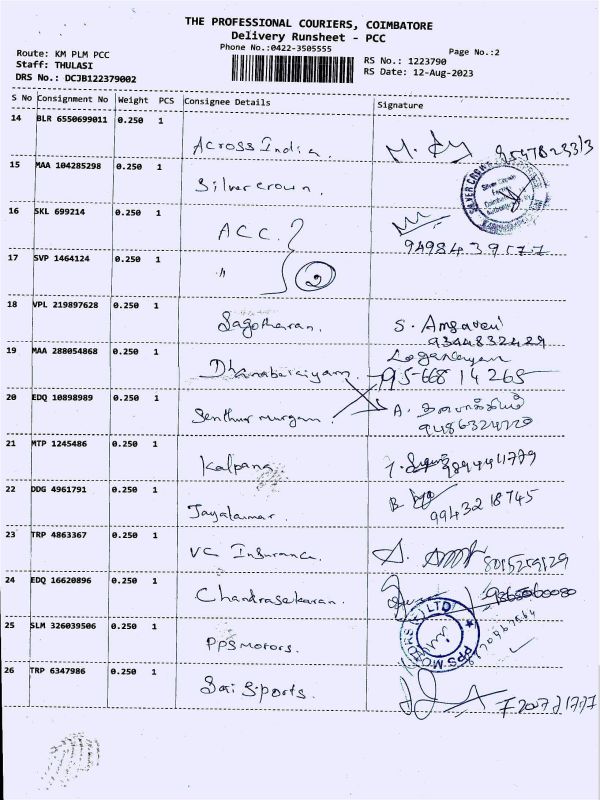 THE PROFESSIONAL COURIERS, COIMBATORE
Delivery Runsheet - PCC
Phone No.:0422-3505555
Page No.:2
Route: KM PLM PCC
Staff: THULASI
DRS No.: DCJB122379002
RS No.: 1223790
RS Date: 12-Aug-2023
S No Consignment No Weight PCS Consignee Details Signature
14 BLR 6550699011 0.250 1
Across India.
15 MAA 104285298 0.250 1
Silver crown.
16 SKL 699214 0.250 1
ACC.
17 SVP 1464124 0.250 1
" 2
18 VPL 219897628 0.250 1
S.
9344832429
19 MAA 288054868 0.250 1
95-668 14 265
20 EDQ 10898989 0.250 1
Senthur murgam. A.
9486324720
21 MTP 1245486 0.250 1
Kalpana
22 DDG 4961791 0.250 1
B.
9943218745
23 TRP 4863367 0.250 1
VC Insurance.
8015259129
24 EDQ 16620896 0.250 1
Chandrasekaran.
25 SLM 326039506 0.250 1
PPS Motors. PPS MOTORS (P) LTD
26 TRP 6347986 0.250 1
Sai Sports.